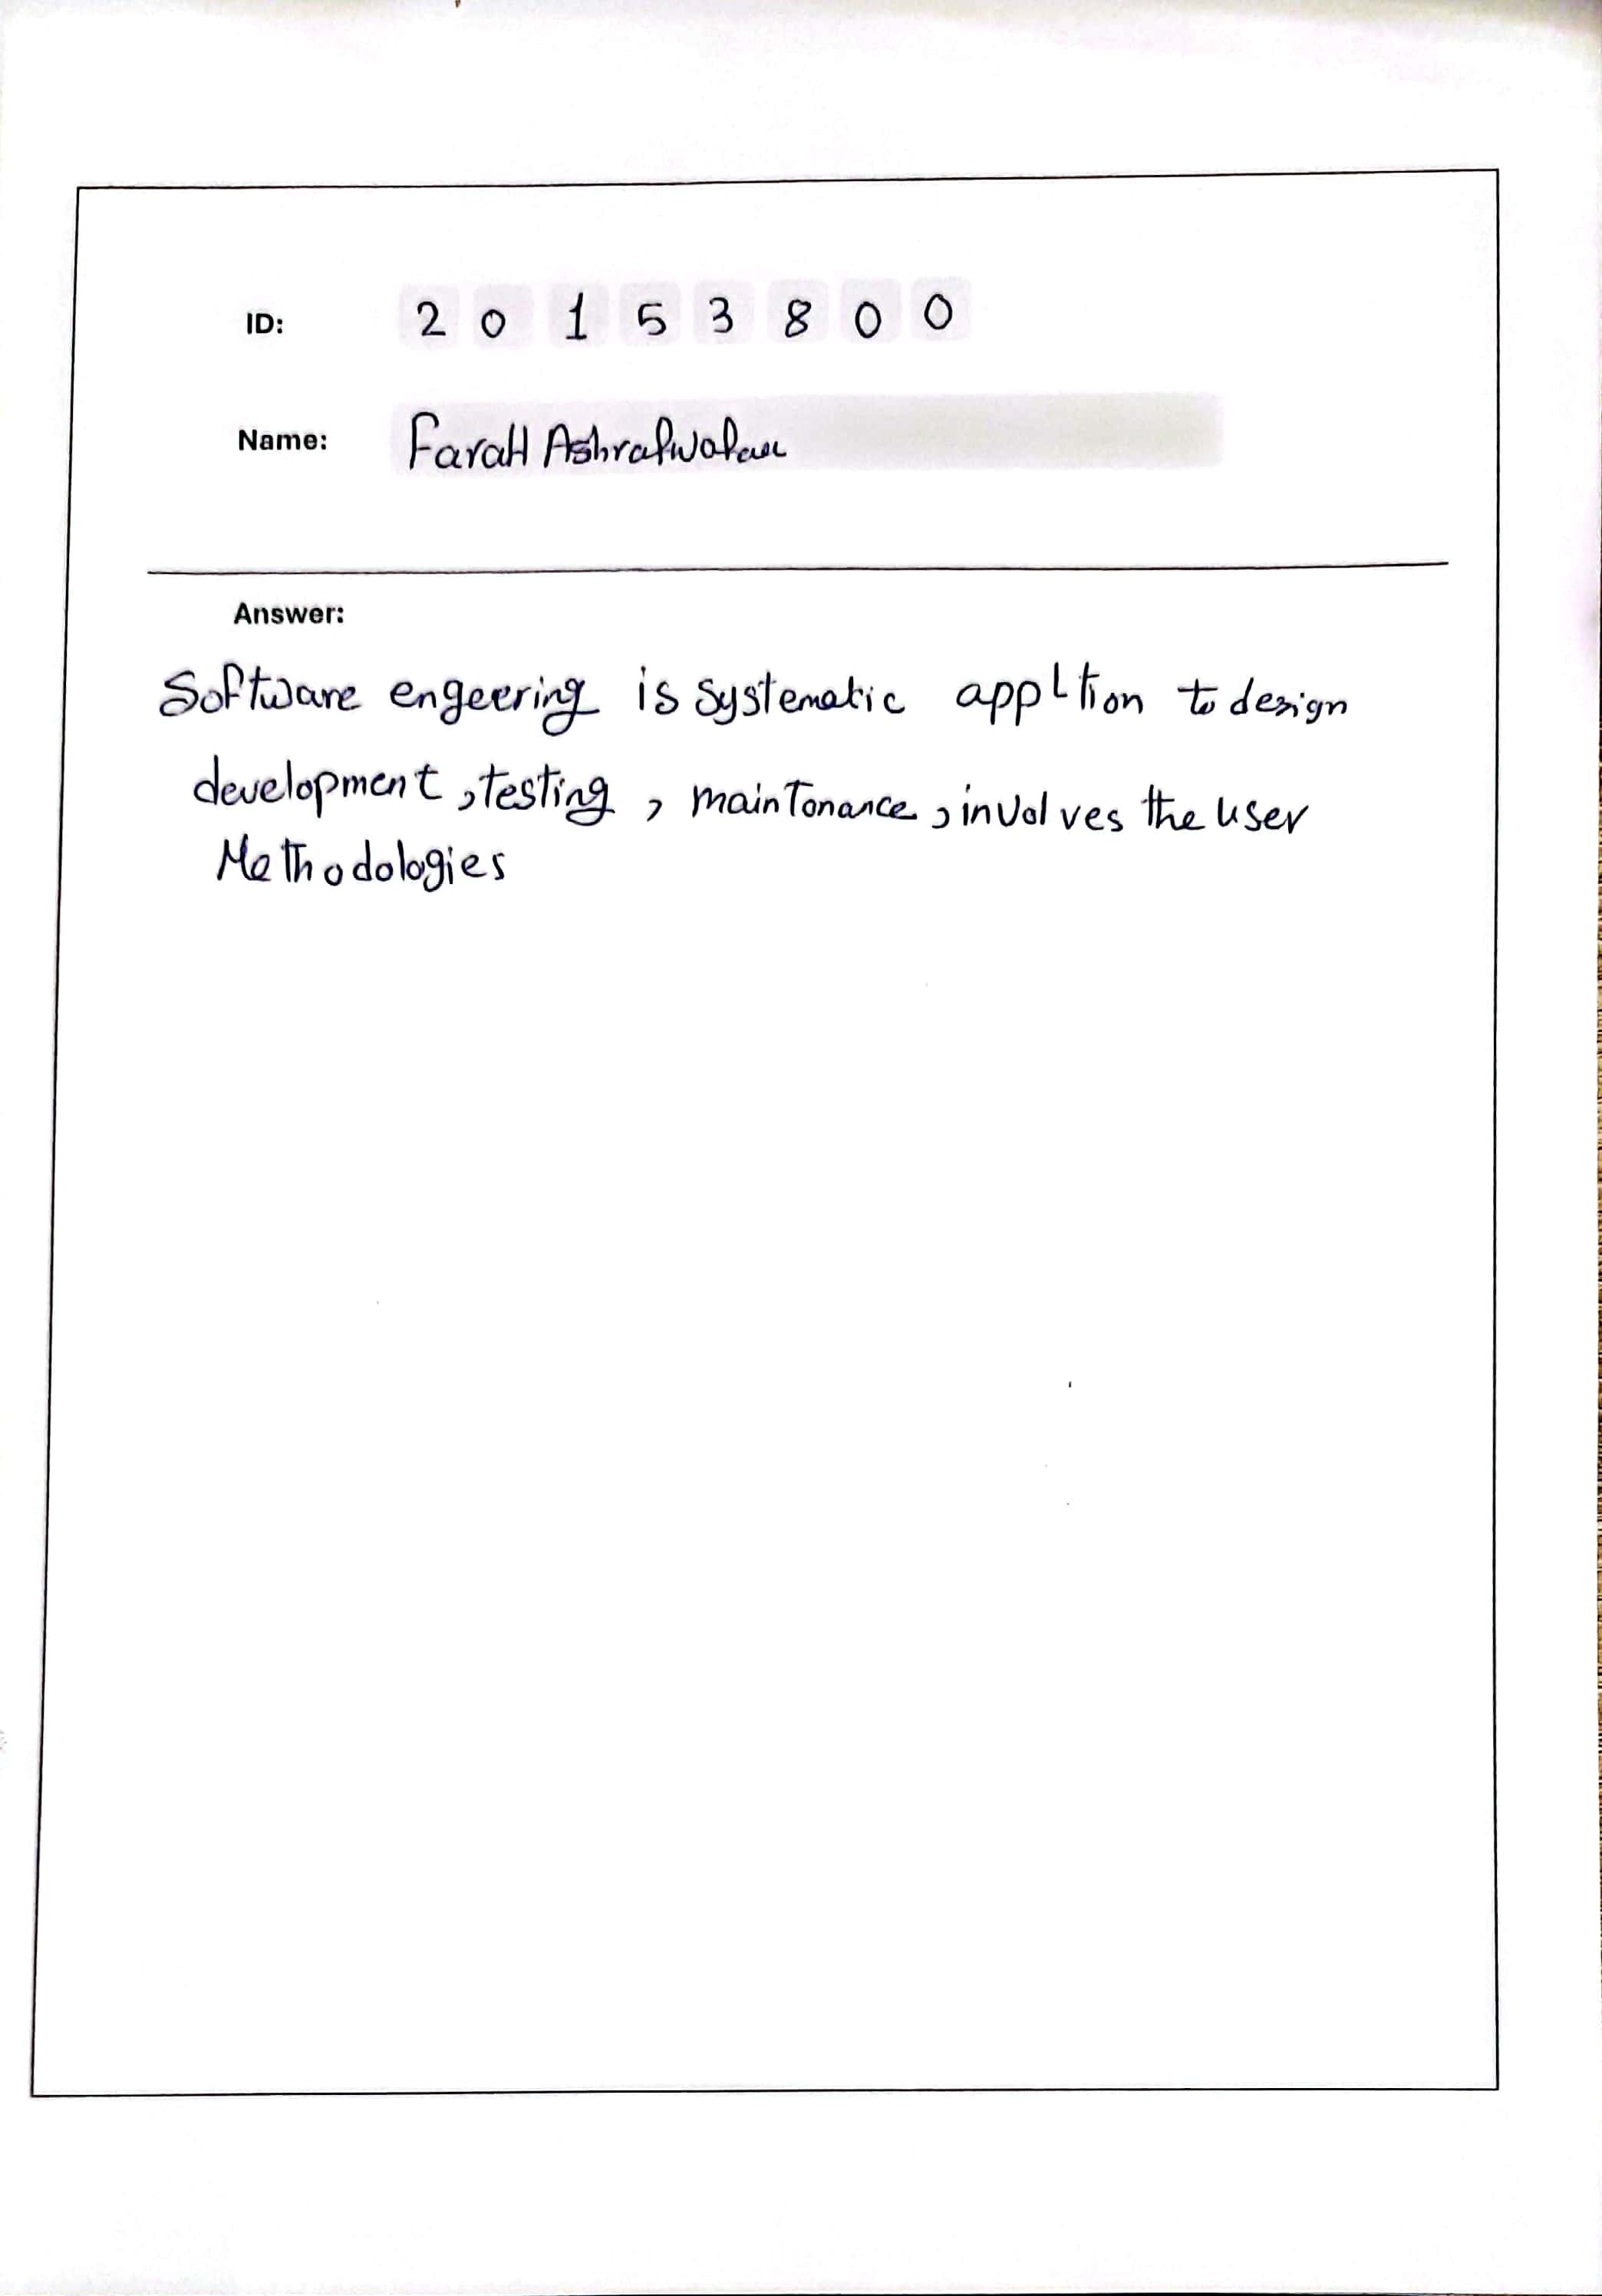 ID: 2 0 1 5 3 8 0 0
Name: FaraH Ashraf
Answer:
Software engeering is systematic appltion to design
development, testing, maintonance, involves the user
Methodologies